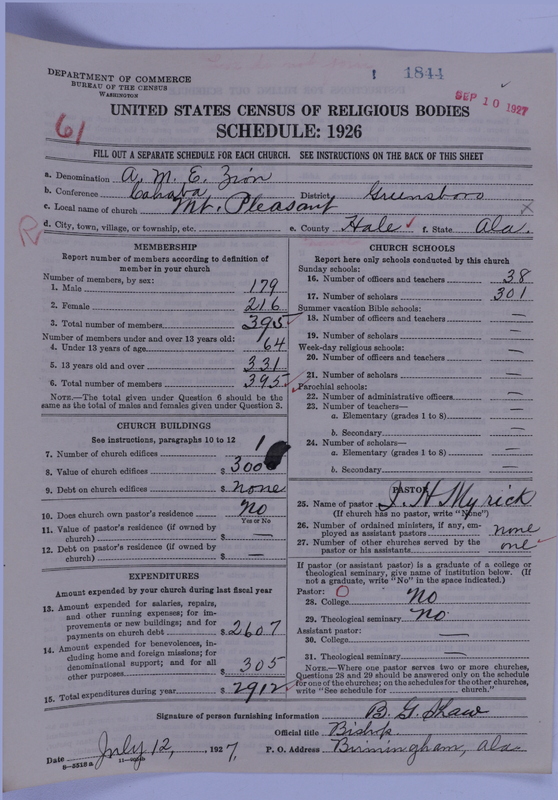 1844
DEPARTMENT OF COMMERCE
BUREAU OF THE CENSUS
WASHINGTON
SEP 10 1927
UNITED STATES CENSUS OF RELIGIOUS BODIES
SCHEDULE: 1926
61
FILL OUT A SEPARATE SCHEDULE FOR EACH CHURCH. SEE INSTRUCTIONS ON THE BACK OF THIS SHEET
a. Denomination A. M. E. Zion
b. Conference Cahaba District Greensboro
c. Local name of church Mt. Pleasant
d. City, town, village, or township, etc. e. County Hale f. State Ala.
R
MEMBERSHIP
Report number of members according to definition of
member in your church
Number of members, by sex:
1. Male 179
2. Female 216
3. Total number of members 395
Number of members under and over 13 years old:
4. Under 13 years of age 64
5. 13 years old and over 331
6. Total number of members 395
NOTE.—The total given under Question 6 should be the
same as the total of males and females given under Question 3.
CHURCH BUILDINGS
See instructions, paragraphs 10 to 12
7. Number of church edifices 1
8. Value of church edifices $ 3000
9. Debt on church edifices $ none
10. Does church own pastor's residence? No
Yes or No
11. Value of pastor's residence (if owned by
church) $ —
12. Debt on pastor's residence (if owned by
church) $ —
EXPENDITURES
Amount expended by your church during last fiscal year
13. Amount expended for salaries, repairs,
and other running expenses; for im-
provements or new buildings; and for
payments on church debt $ 2607
14. Amount expended for benevolences, in-
cluding home and foreign missions; for
denominational support; and for all
other purposes $ 305
15. Total expenditures during year $ 2912
CHURCH SCHOOLS
Report here only schools conducted by this church
Sunday schools:
16. Number of officers and teachers 38
17. Number of scholars 301
Summer vacation Bible schools:
18. Number of officers and teachers —
19. Number of scholars —
Week-day religious schools:
20. Number of officers and teachers —
21. Number of scholars —
Parochial schools:
22. Number of administrative officers —
23. Number of teachers—
a. Elementary (grades 1 to 8) —
b. Secondary —
24. Number of scholars—
a. Elementary (grades 1 to 8) —
b. Secondary —
PASTOR
25. Name of pastor I. H. Myrick
(If church has no pastor, write "None")
26. Number of ordained ministers, if any, em-
ployed as assistant pastors none
27. Number of other churches served by the
pastor or his assistants one
If pastor (or assistant pastor) is a graduate of a college or
theological seminary, give name of institution below. (If
not a graduate, write "No" in the space indicated.)
Pastor: O
28. College No
29. Theological seminary No
Assistant pastor:
30. College —
31. Theological seminary —
NOTE.—Where one pastor serves two or more churches,
Questions 28 and 29 should be answered only on the schedule
for one of the churches; on the schedules for the other churches,
write "See schedule for church."
Signature of person furnishing information B. G. Shaw
Official title Bishop
Date July 12, 1927. P. O. Address Birmingham, Ala
8-5518 a